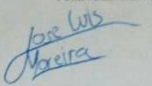 Jose Luis
Moreira